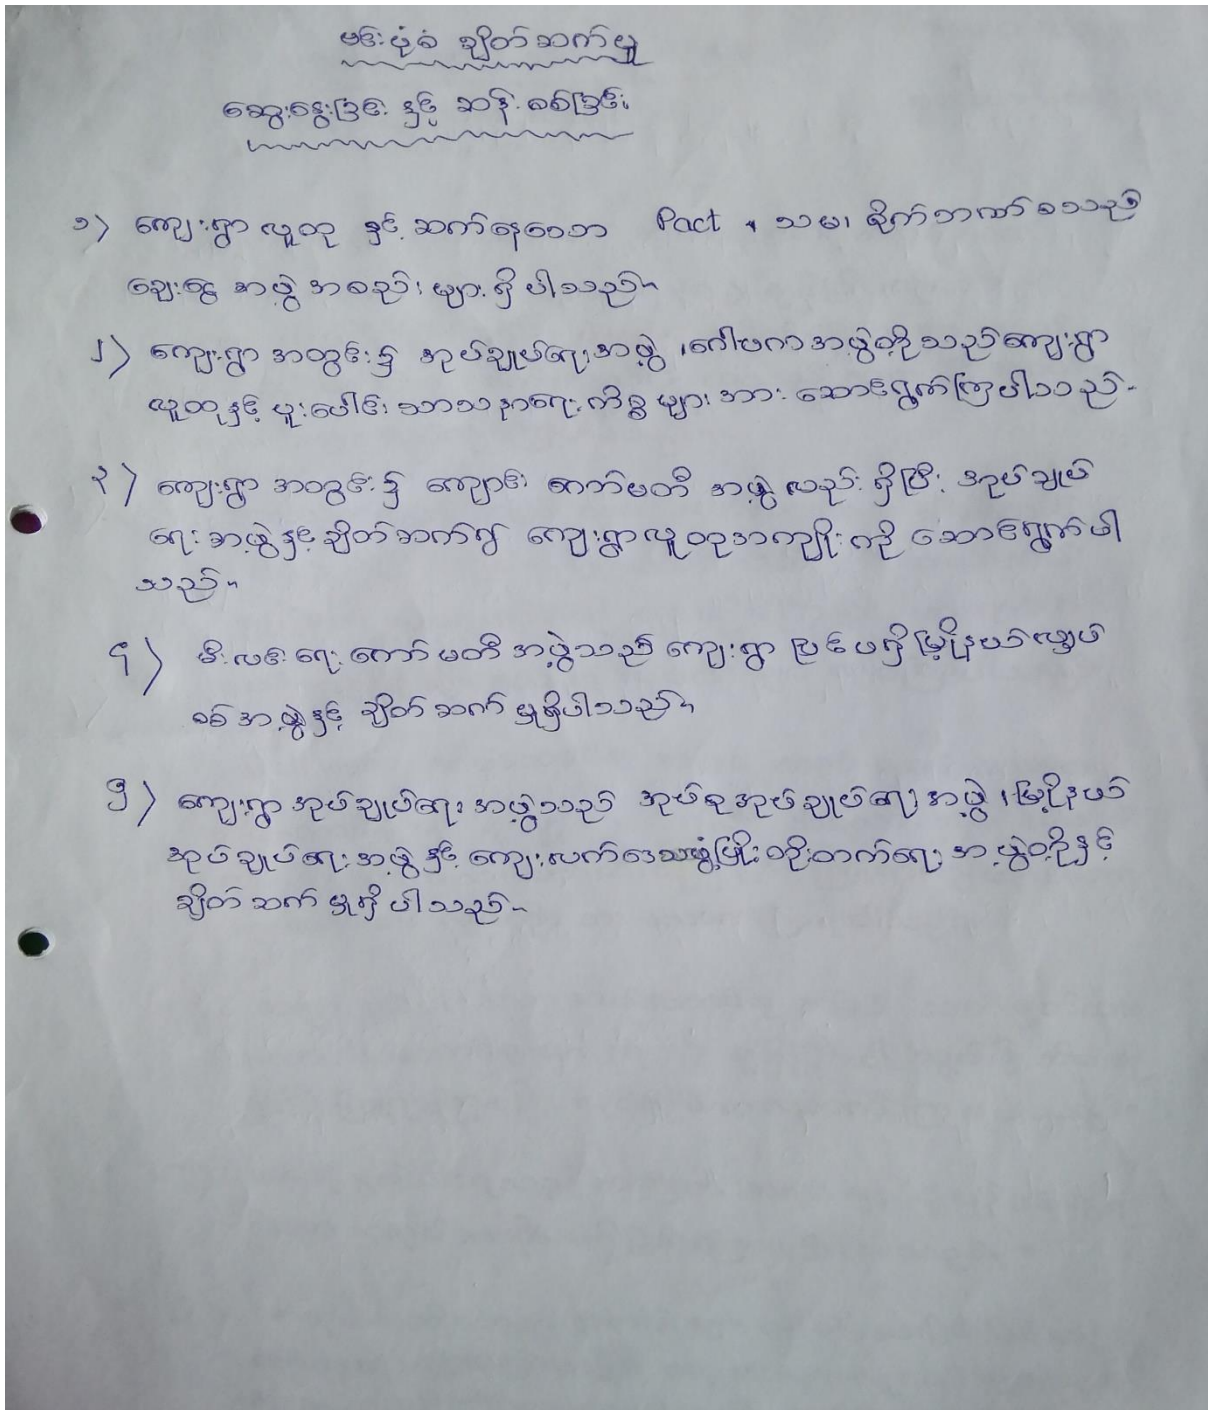 ဗင်းပုံစံ ချိတ်ဆက်မှု
ဆွေးနွေးခြင်း နှင့် ဆန်းစစ်ခြင်း
၁) ကျေးရွာ လူထု နှင့် ဆက်နေသော Pact ၊ သမ၊ စိုက်ဘဏ် စသည့်
ချေးငွေ အဖွဲ့ အစည်း များ ရှိ ပါသည်။
၂) ကျေးရွာ အတွင်း၌ အုပ်ချုပ်ရေးအဖွဲ့ ၊ ဂေါပကအဖွဲ့တို့သည် ကျေးရွာ
လူထုနှင့် ပူးပေါင်း သာသနာရေး ကိစ္စ များ အား ဆောင်ရွက်ကြပါသည်။
၃) ကျေးရွာ အတွင်း၌ ကျောင်း ကော်မတီ အဖွဲ့ လည်း ရှိပြီး အုပ်ချုပ်
ရေး အဖွဲ့နှင့် ချိတ်ဆက်၍ ကျေးရွာလူထုအကျိုးကို ဆောင်ရွက်ပါ
သည်။
၄) မီးလင်းရေး ကော်မတီ အဖွဲ့သည် ကျေးရွာ ပြင်ပရှိ မြို့နယ်လျှပ်
စစ် အဖွဲ့နှင့် ချိတ်ဆက် မှုရှိပါသည်။
၅) ကျေးရွာအုပ်ချုပ်ရေး အဖွဲ့သည် အုပ်စုအုပ်ချုပ်ရေး အဖွဲ့ ၊ မြို့နယ်
အုပ်ချုပ်ရေး အဖွဲ့ နှင့် ကျေးလက်ဒေသဖွံ့ဖြိုးတိုးတက်ရေး အဖွဲ့တို့နှင့်
ချိတ်ဆက် မှုရှိ ပါသည်။